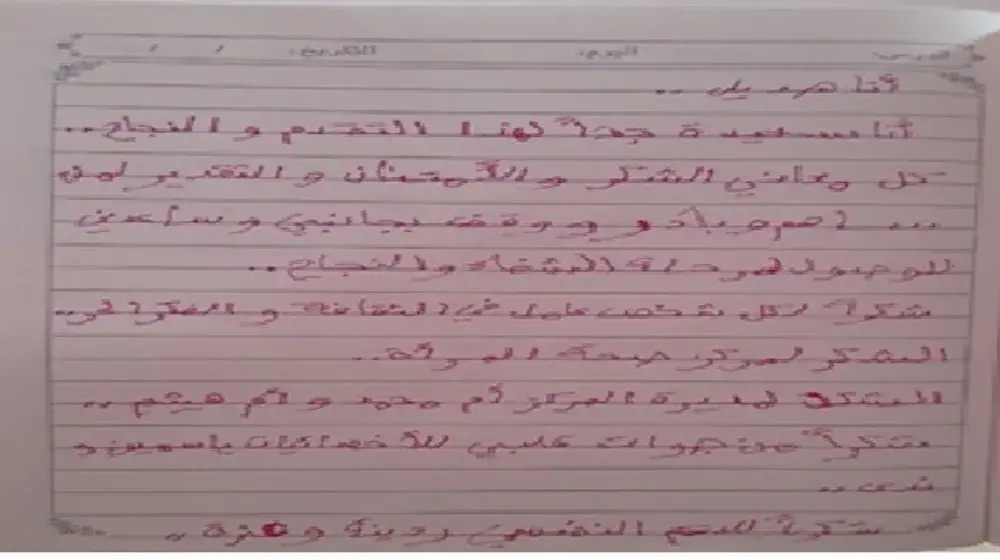 الدرس: اليوم: التاريخ: / /
أنا مريم ..
أنا سعيدة جداً لهذا التقدم و النجاح..
كل معاني الشكر و الأمتنان و التقدير لمن
بجانبي وساعدني
للوصول لمرحلة الشفاء والنجاح..
شكراً لكل شخص عامل في النقاعة و الفكرة
الشكر لمركز صحة المرأة..
الشكر لمديرة المركز أم محمد و أم هيثم ..
شكراً من قلبي للأخصائيات ياسمين و
شكراً للدعم النفسي روينة و عزة ..